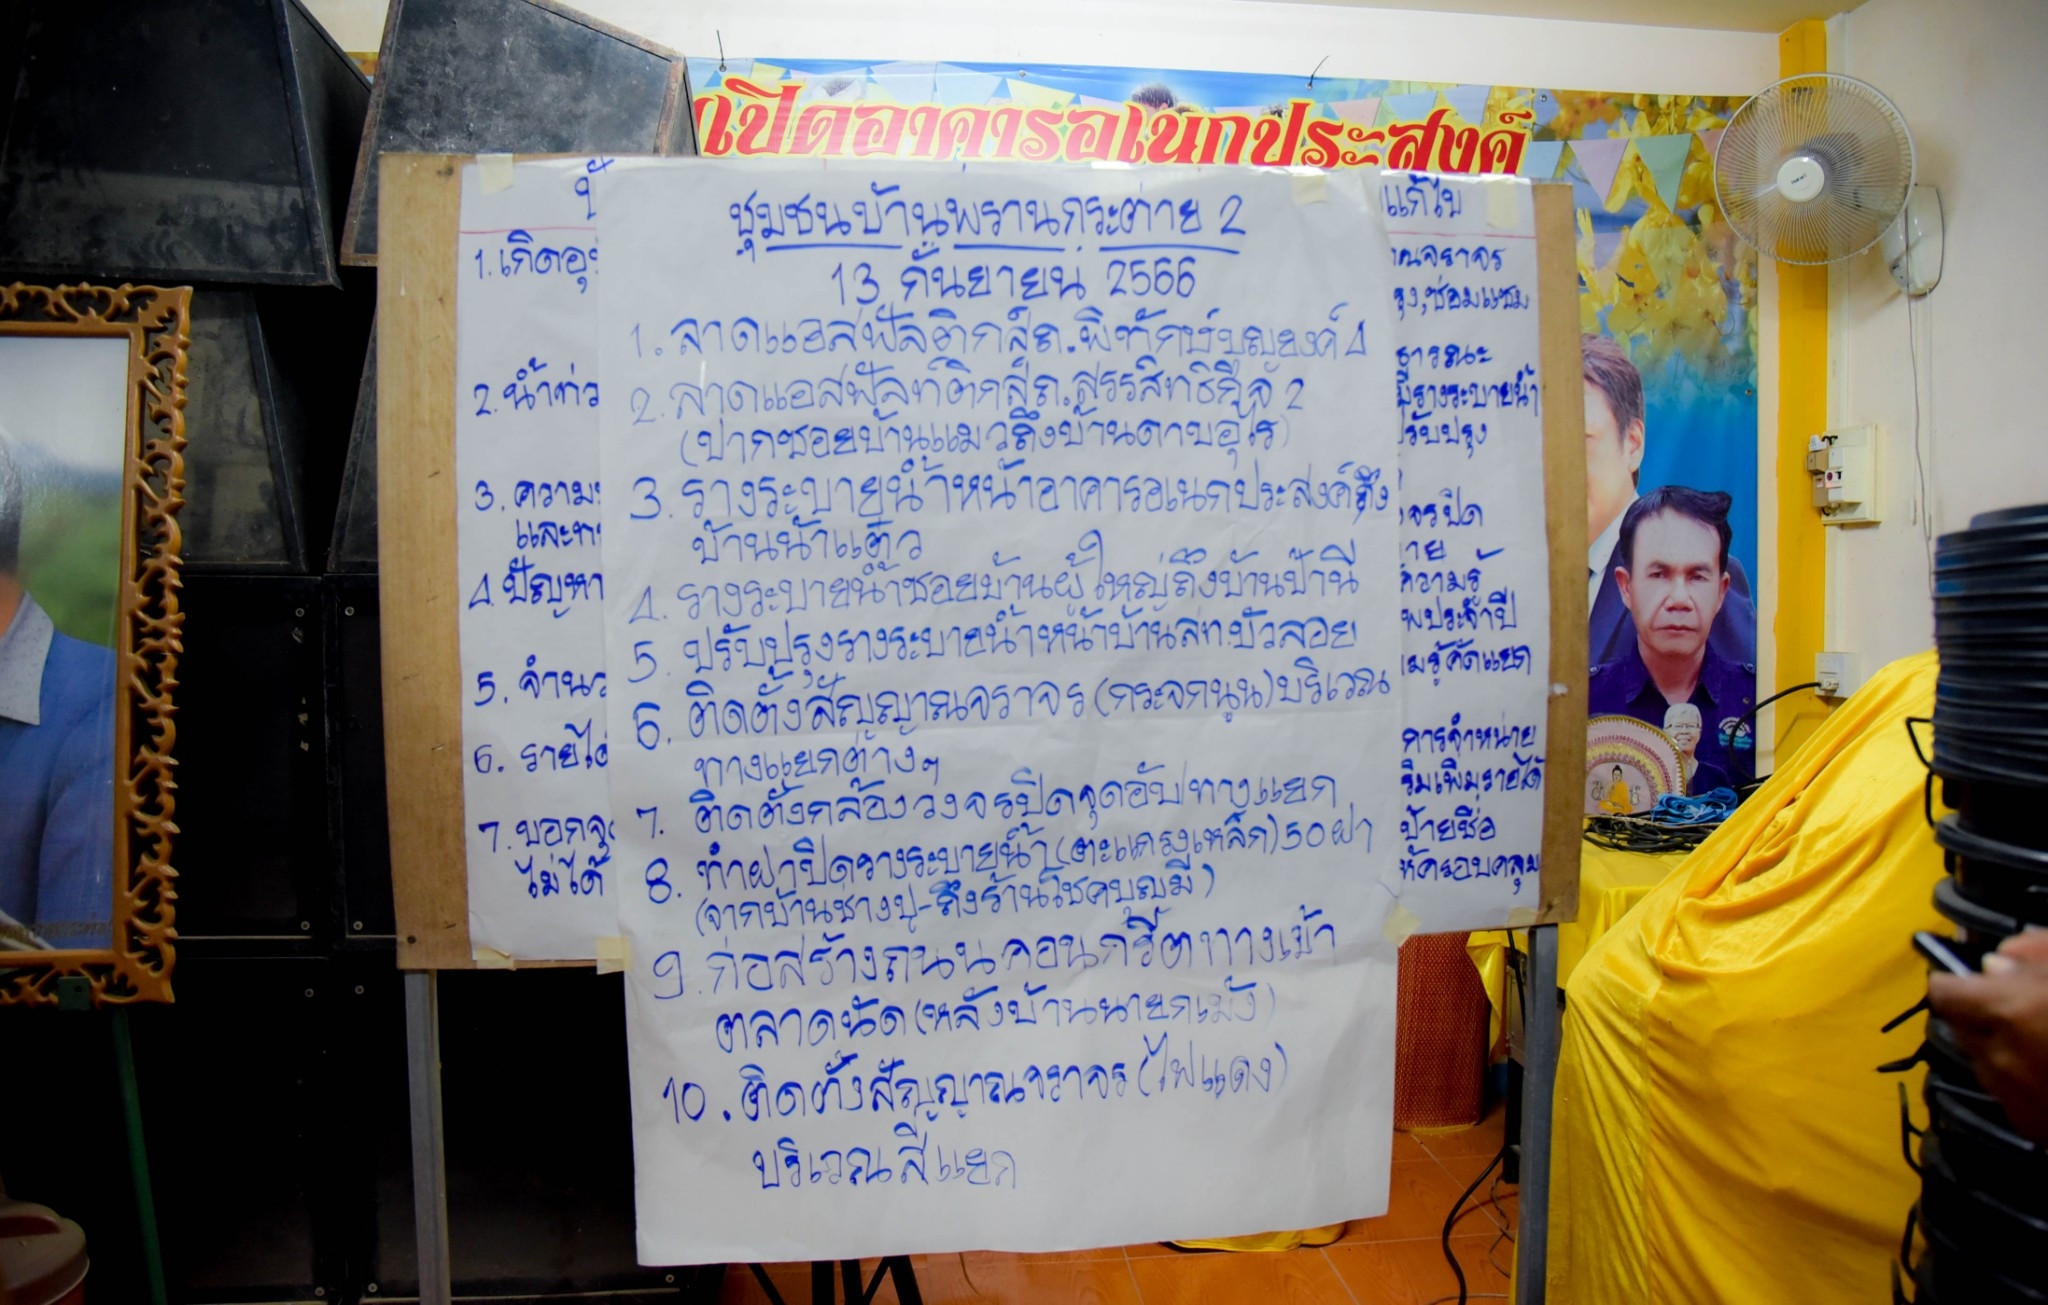 เปิดอาคารอเนกประสงค์
ชุมชนบ้านพรานกระต่าย 2
13 กันยายน 2566
1. ลาดแอสฟัลติกส์ถ.พิทักษ์บุญยงค์ 4
2. ลาดแอสฟัลท์ติกส์ถ.สรรสิทธิกิจ 2
(ปากซอยบ้านแมวถึงบ้านดาบอุไร)
3. รางระบายน้ำหน้าอาคารอเนกประสงค์ถึง
บ้านน้ำแต้ว
4. รางระบายน้ำซอยบ้านผู้ใหญ่ถึงบ้านป้านี
5. ปรับปรุงรางระบายน้ำหน้าบ้านสท.บัวลอย
6. ติดตั้งสัญญาณจราจร(กระจกนูน)บริเวณ
ทางแยกต่างๆ
7. ติดตั้งกล้องวงจรปิดจุดอับทางแยก
8. ทำฝาปิดรางระบายน้ำ(ตะแกรงเหล็ก)50ฝา
(จากบ้านช่างปู-ถึงร้านโชคบุญมี)
9. ก่อสร้างถนนคอนกรีตทางเข้า
ตลาดนัด(หลังบ้านนายกเม้ง)
10. ติดตั้งสัญญาณจราจร(ไฟแดง)
บริเวณสี่แยก
1. เกิดอุ
2. น้ำท่ว
3. ความ
และทร
4. ปัญหา
5. จำนว
6. รายได้
7. บอกจุด
ไม่ได้
แก้ไข
ณจราจร
รุง,ซ่อมแซม
ธารณะ
มีรางระบายน้ำ
ปรับปรุง
จรปิด
ความรู้
พประจำปี
มรู้คัดแยก
การจำหน่าย
ริมเพิ่มรายได้
ป้ายชื่อ
ให้ครอบคลุม